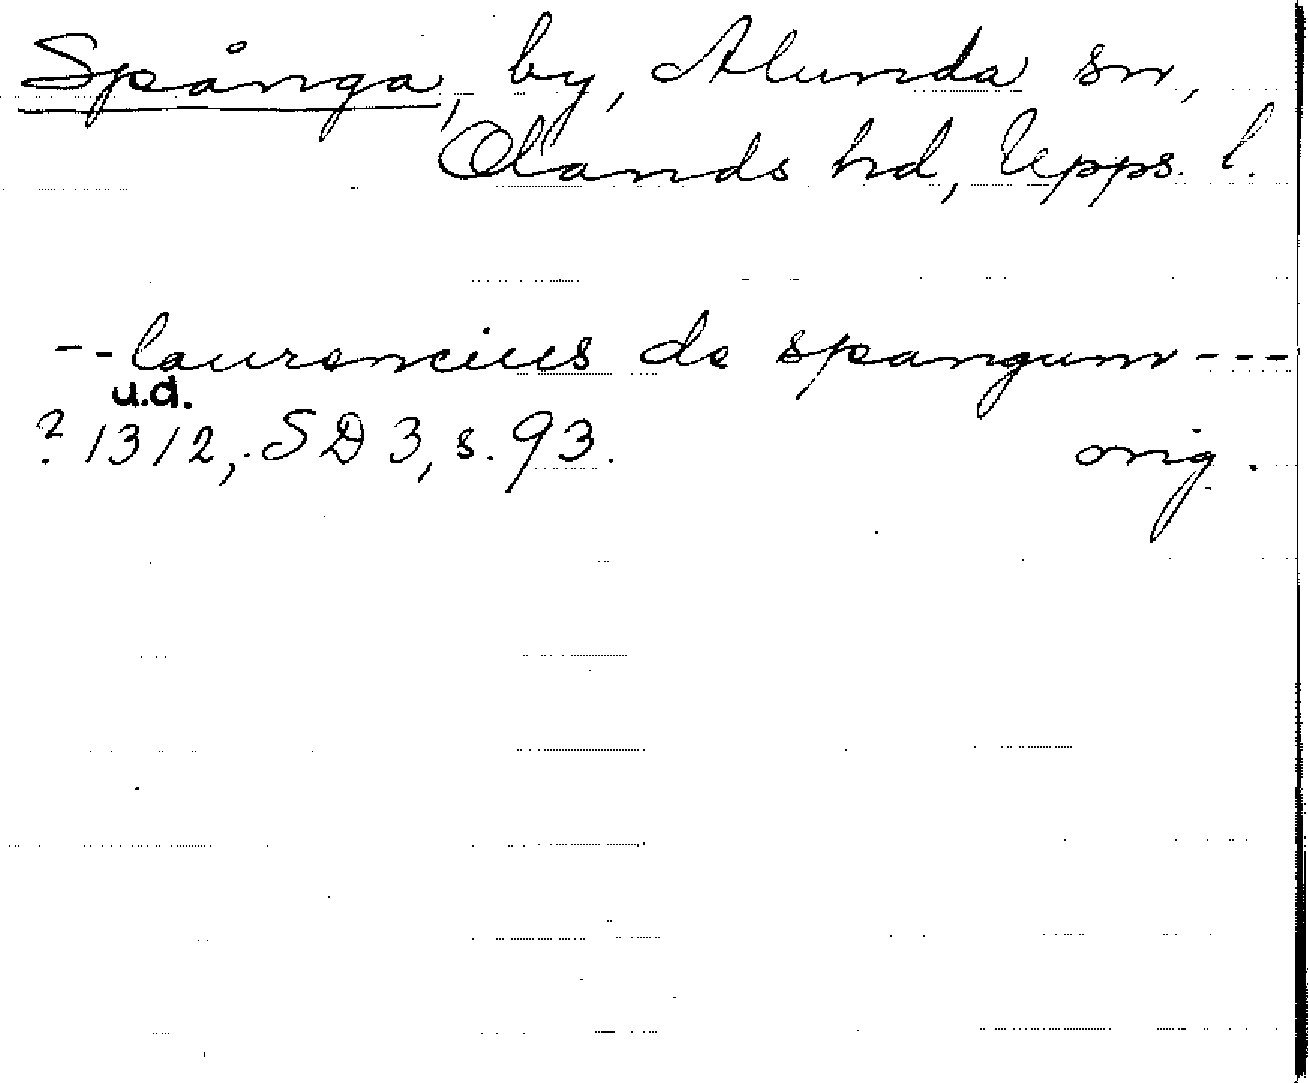 Spånga, by, Alunda sn,
Olands hd, Upps. l.
-- laurencius de spangum ---
u.d.
? 1312, SD 3, s. 93. orig.